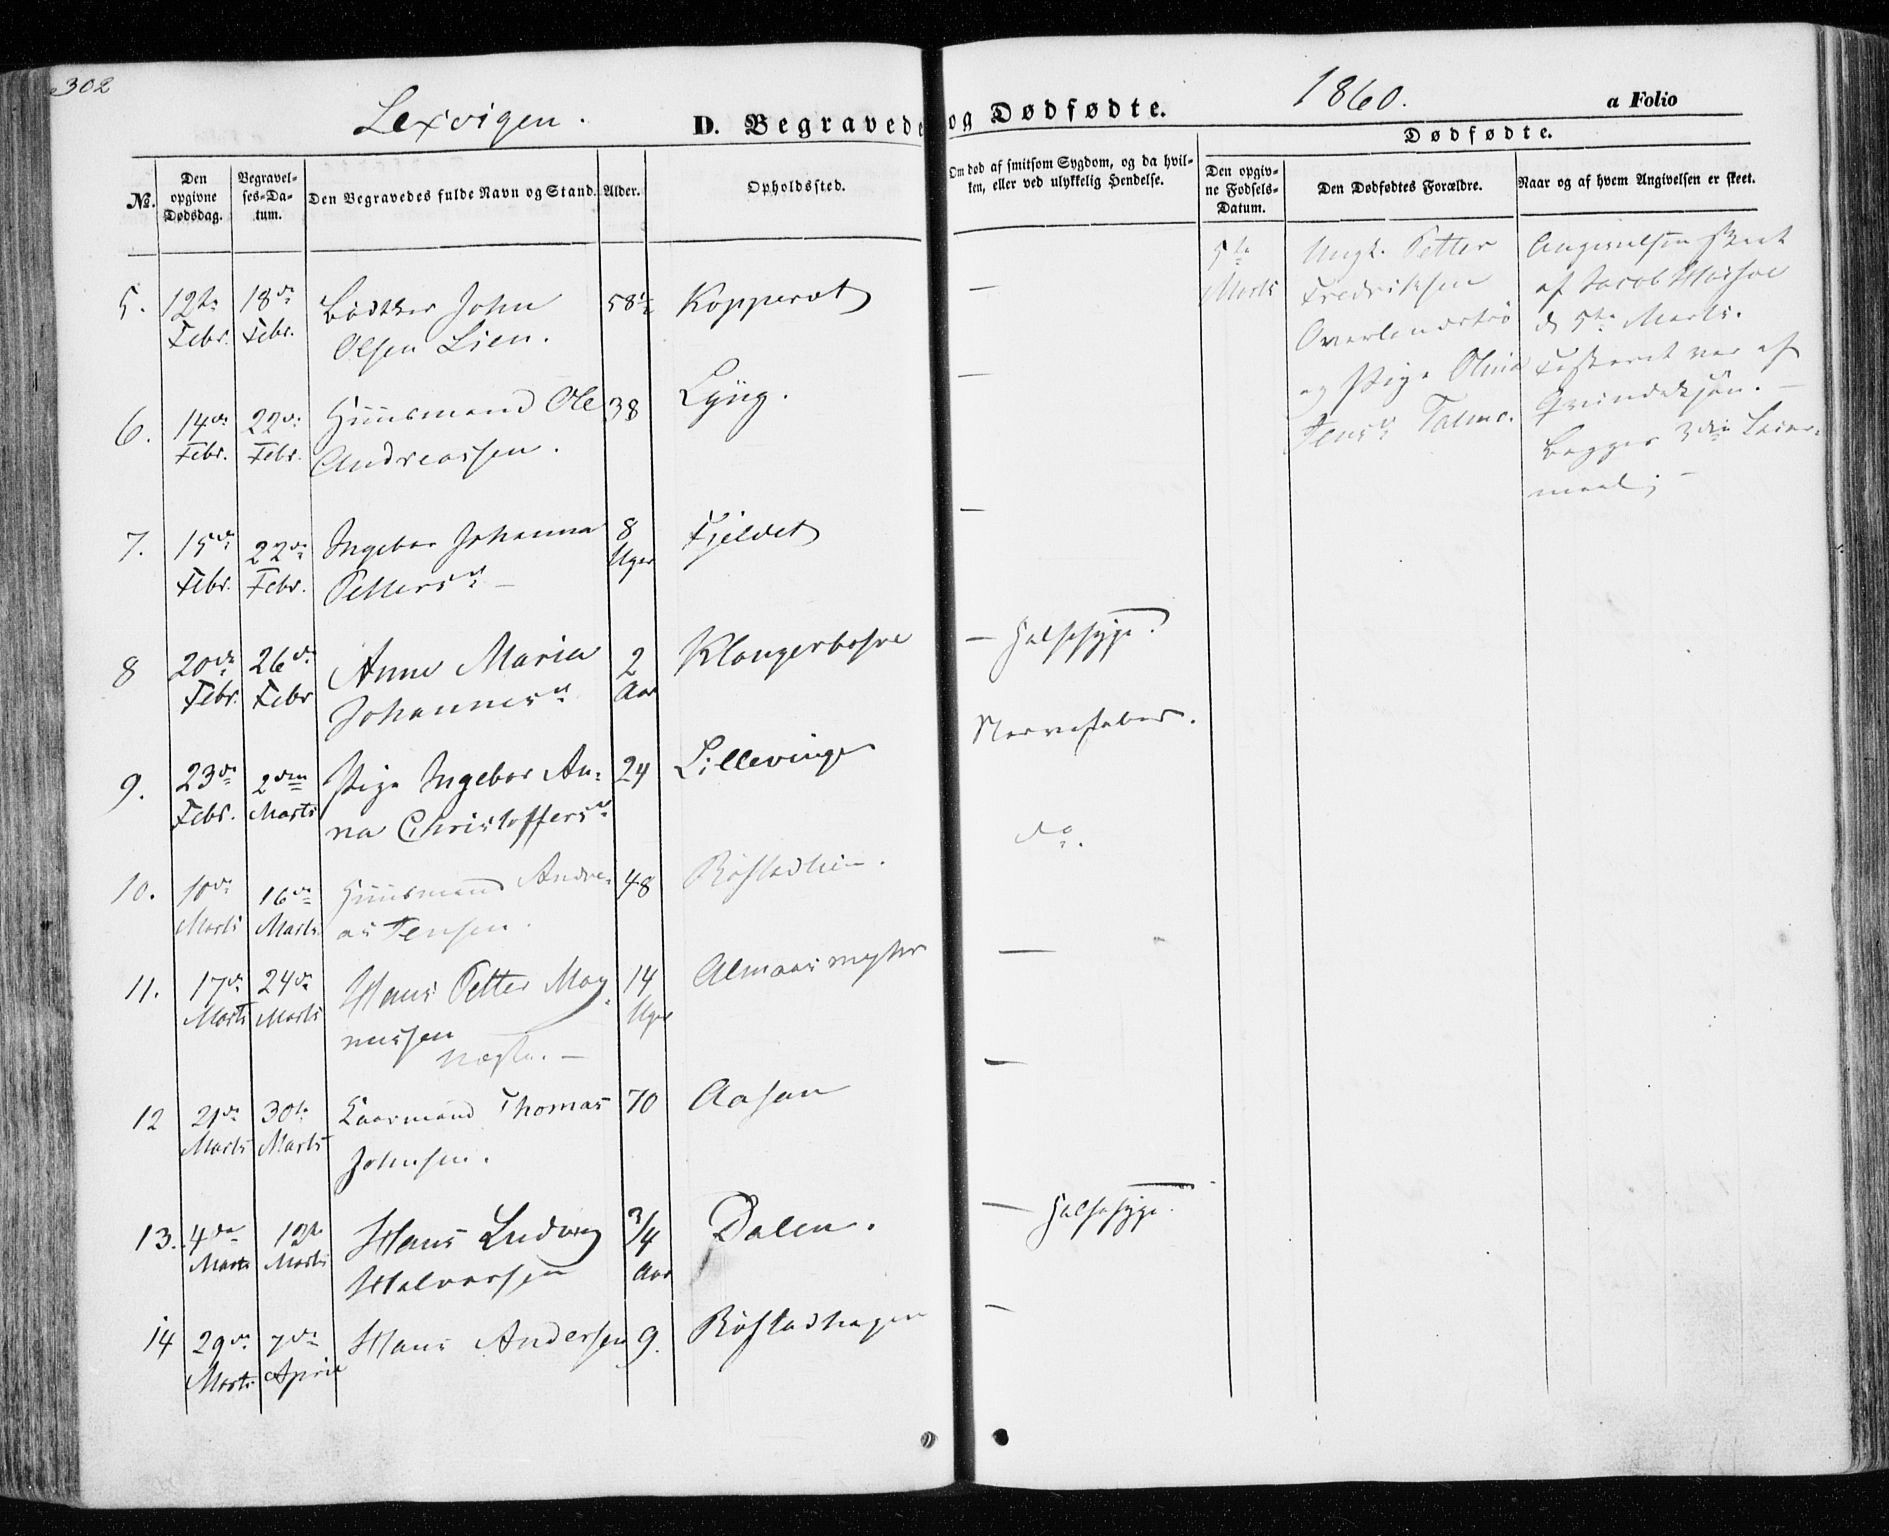 302
Lexvigen.
D. Begravede og Dødfødte.
1860.
a Folio
No.
Den opgivne Dødsdag.
Begravelses-Datum.
Den Begravedes fulde Navn og Stand.
Alder.
Opholdssted.
Om død af smitsom Sygdom, og da hvilken, eller ved ulykkelig Hendelse.
Dødfødte.
Den opgivne Fødsels-Datum.
Den Dødfødtes Forældre.
Naar og af hvem Angivelsen er skeet.
5. 12te 18de Bødtker John 58½ Kopperat —
Febr. Febr. Olsen Lien.
6. 14de 22de Huusmand Ole 38 Lyng. —
Febr. Febr. Andreassen.
7. 15de 22de Ingebor Johanna 8 Fjeldet —
Febr. Febr. Pettersd. — Uger
8 20de 26de Anne Maria 2 — Halssyge.
Febr. Febr Johannesd. Aar
9. 23de 2den Pige Ingebor An- 24 Lillevinge Nervefeber.
Febr. Marts na Christoffersd.
10. 10de 16de Huusmand Andre- 48 do.
Marts Marts. as Jensen.
11. 17de 24de Hans Petter Mag- 14 —
Marts Marts nussen Uger
12 21de 30te Kaarmand Thomas 70 Aasan —
Marts Marts Johnsen.
13. 4de 12te Hans Ludvig 3/4 Dalen. — Halssyge.
Marts Marts Halvorsen Aar
14 29de 7de Hans Andersen 9. Røstadhagen —
Marts April
5te
Marts
Ungk. Petter
Fredriksen
Overlandstrø
og Pige Olina
Jensd.
Angivelsen skeet
af Jacob
d. 5te Marts.
Fosteret var af
Qvindekjøn. —
Begges 3die Leier-
maal; —